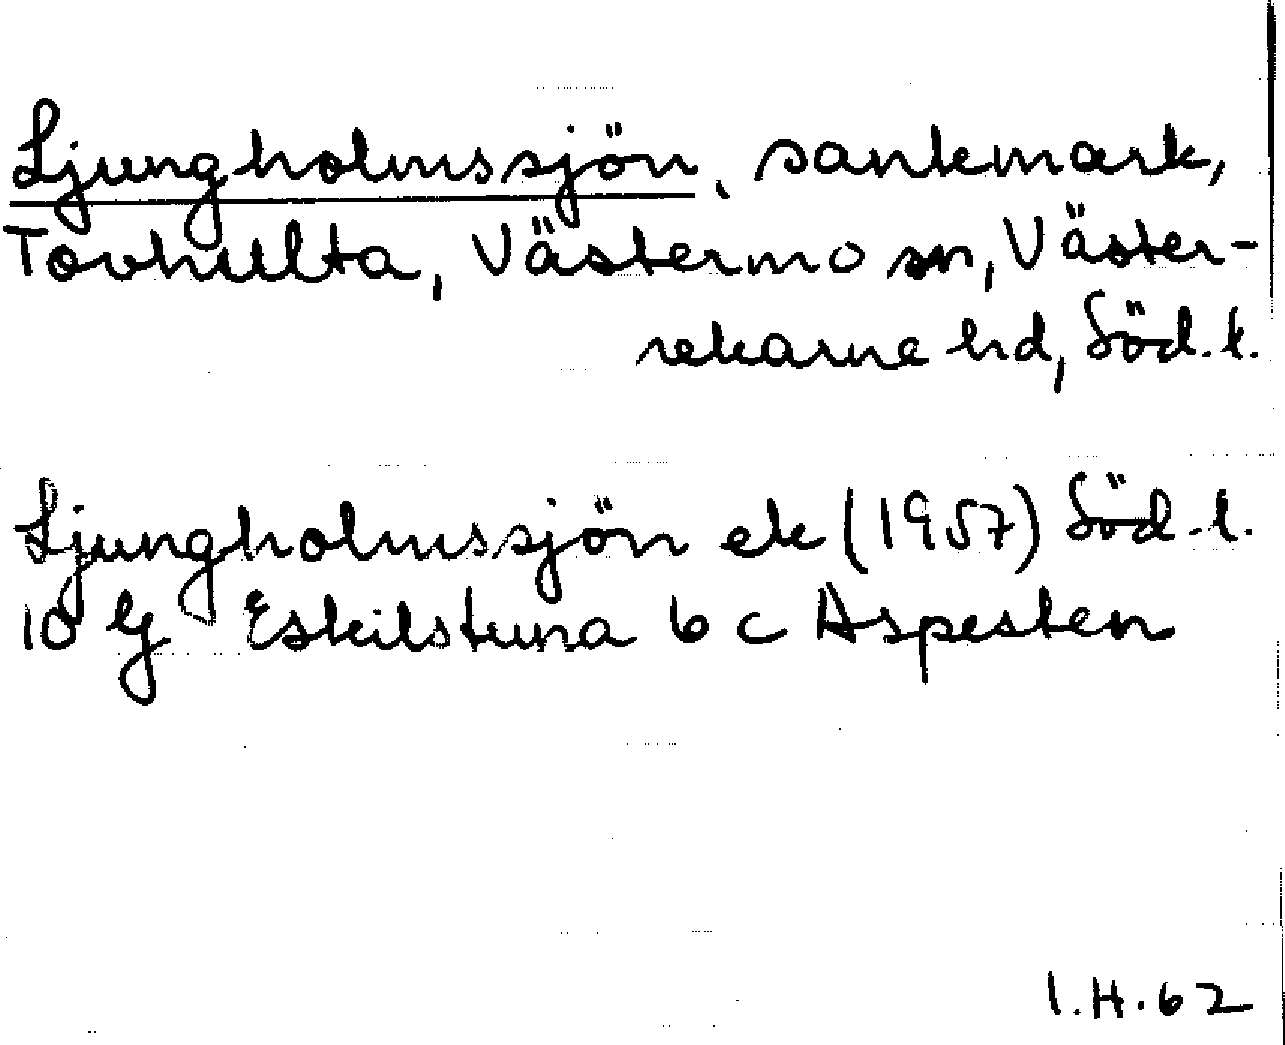 Ljungholmssjön, sankmark,
Tovhulta, Västermo sn, Väster-
rekarne hd, Söd. l.
Ljungholmssjön ek (1957) Söd. l.
10 G Eskilstuna 6 c Aspesten
I.H. 62